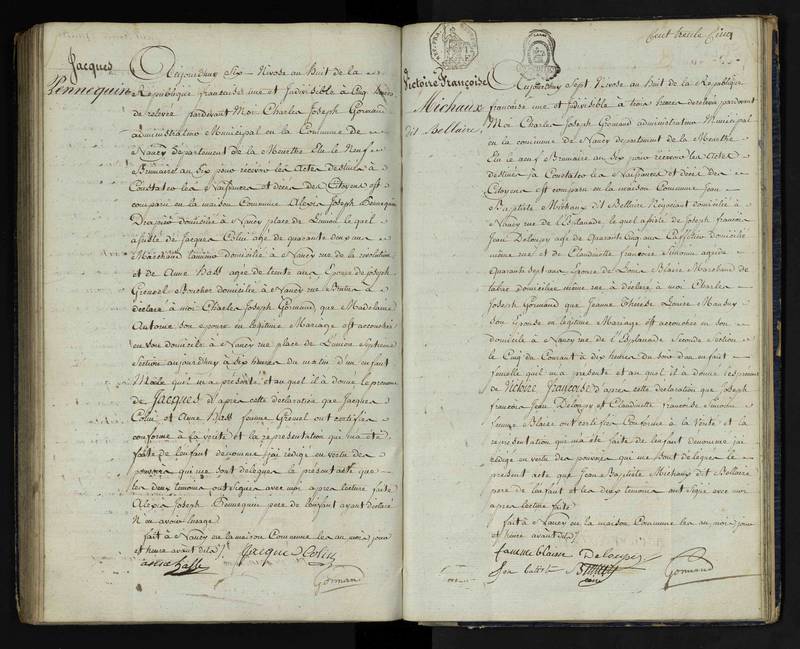 Jacques
Pennequin
Aujourdhuy Six Nivose au huit de la
République francaise une et Indivisible à Cinq heures
de relevée pardevant Moi Charles Joseph Gormand
administrateur Municipal en la Commune de
Nancy Département de la Meurthe Elu le Neuf
Brumaire au Six pour recevoir les Actes destinés à
Constater les Naissances et décès des Citoyens est
comparu en la maison Commune Alexis Joseph Pennequin
Drapier domicilié à Nancy place de Lunion le quel
assisté de Jacques Colin agé de quarante deux ans
Marchand domicilié à Nancy rue de la révolution
et de Anne Hass agée de trente ans Epouse de Joseph
Grenel Boucher domicilié à Nancy rue
déclaré à moi Charles Joseph Gormand, que Madelaine
Antoine son epouse en légitime Mariage est accouchée
en son domicile à Nancy rue place de Lunion Septieme
Section aujourdhuy à dix heures du matin d'un enfant
Male qu'il m'a présenté et auquel il à donné le prenom
de Jacques d'après cette déclaration que Jacques
Colin et Anne Hass femme Grenel ont certifié
conforme à la vérité et la représentation qui m'a été
faite de l'enfant denommé j'ai rédigé en vertu des
pouvoirs qui me sont délégués le présent acte que
les deux temoins ont signés avec moi après lecture faite
Alexis Joseph Pennequin pere de l'enfant ayant déclaré
n'en avoir l'usage
fait à Nancy en la maison Commune les an mois jour
et heure avant dits /.
Jacque Colin
anne hasse
Gormand
Cent trente Cinq
Victoire Françoise
Michaux
dit Bellaire
Aujourdhuy Sept Nivose au huit de la République
francaise une et Indivisible à trois heures de relevée pardevant
Moi Charles Joseph Gormand administrateur Municipal
en la commune de Nancy departement de la Meurthe
Elu le neuf Brumaire au six pour recevoir les Actes
destinés à Constater les Naissances et décès des
Citoyens est comparu en la maison Commune Jean
Baptiste Michaux dit Bellaire Négociant domicilié à
Nancy rue de l'Esplanade, le quel assisté de Joseph francois
Jean Deloupy agé de quarante Cinq ans domicilié
même rue et de Claudinette francoise Simonin agée de
quarante sept ans Epouse de Louis Blaise Marchand de
tabac domiciliée même rue à déclaré à moi Charles
Joseph Gormand que Jeanne thérese Louise Mansuy
son Epouse en légitime Mariage est accouchée en son
domicile à Nancy rue de l'Esplanade Seconde Section
le Cinq du Courant à dix heures du soir d'un enfant
femelle qu'il m'a présenté et auquel il à donné les prenoms
de Victoire francoise d'après cette déclaration que Joseph
francois Jean Delouppy et Claudinette francoise Simonin
femme Blaise ont certifiée Conforme à la Vérité et la
représentation qui m'a été faite de l'enfant denommé j'ai
rédigé en vertu des pouvoirs qui me sont délégués le
présent acte que Jean Baptiste Michaux dit Bellaire
pere de l'enfant et les deux temoins ont signé avec moi
après lecture faite
fait à Nancy en la maison Commune les an mois jour
et heure avant dits /.
femme blaise Deloupy
Gormand